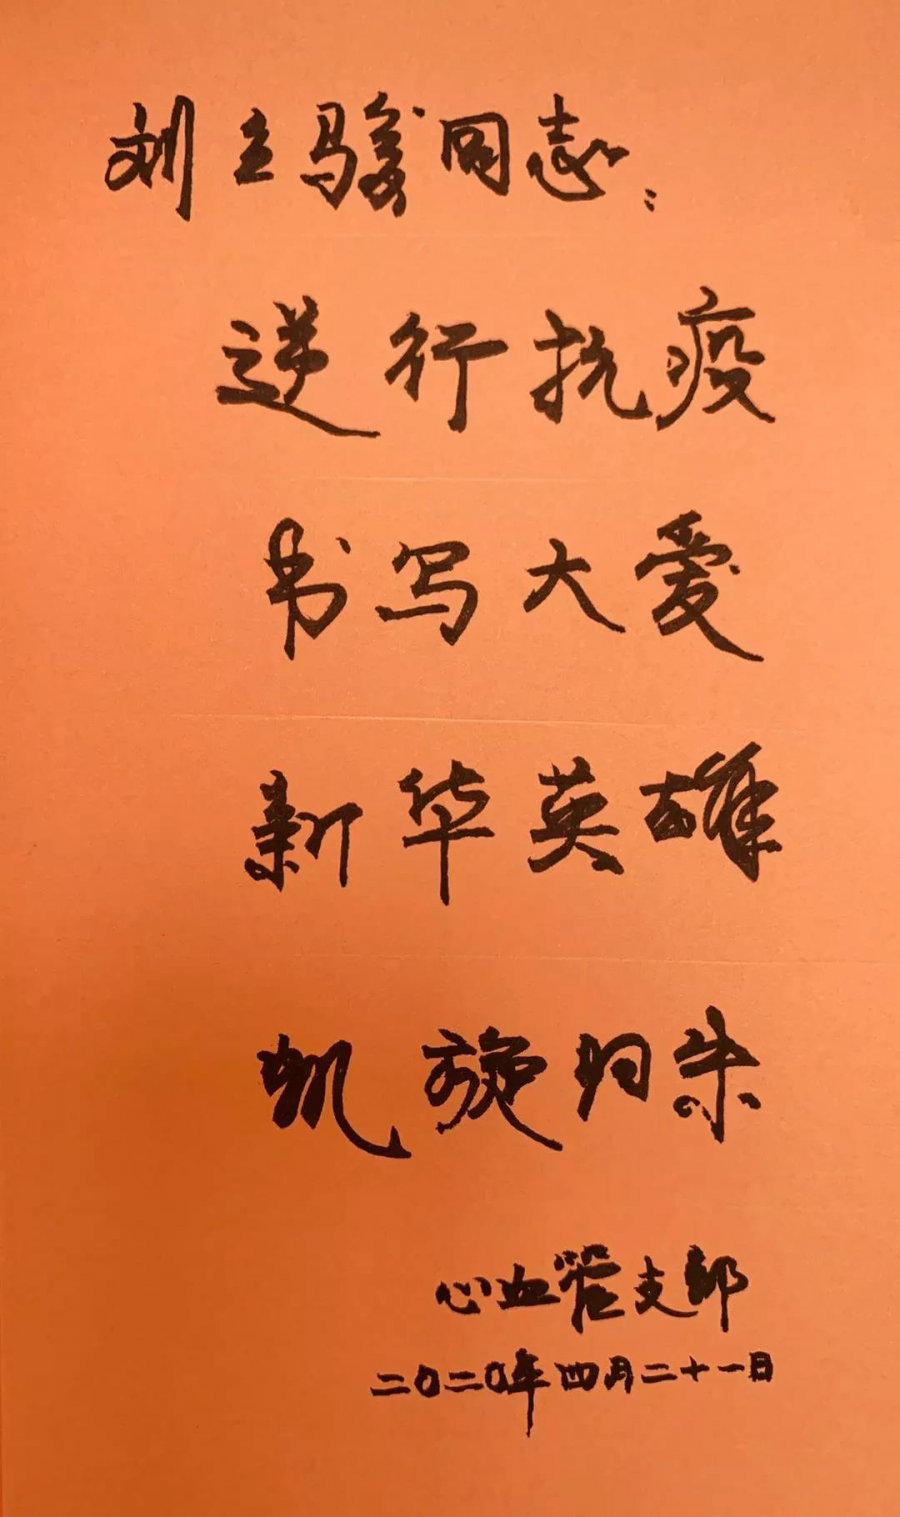 刘立骏同志：
逆行抗疫
书写大爱
新华英雄
凯旋归来
心血管支部
二〇二〇年四月二十一日